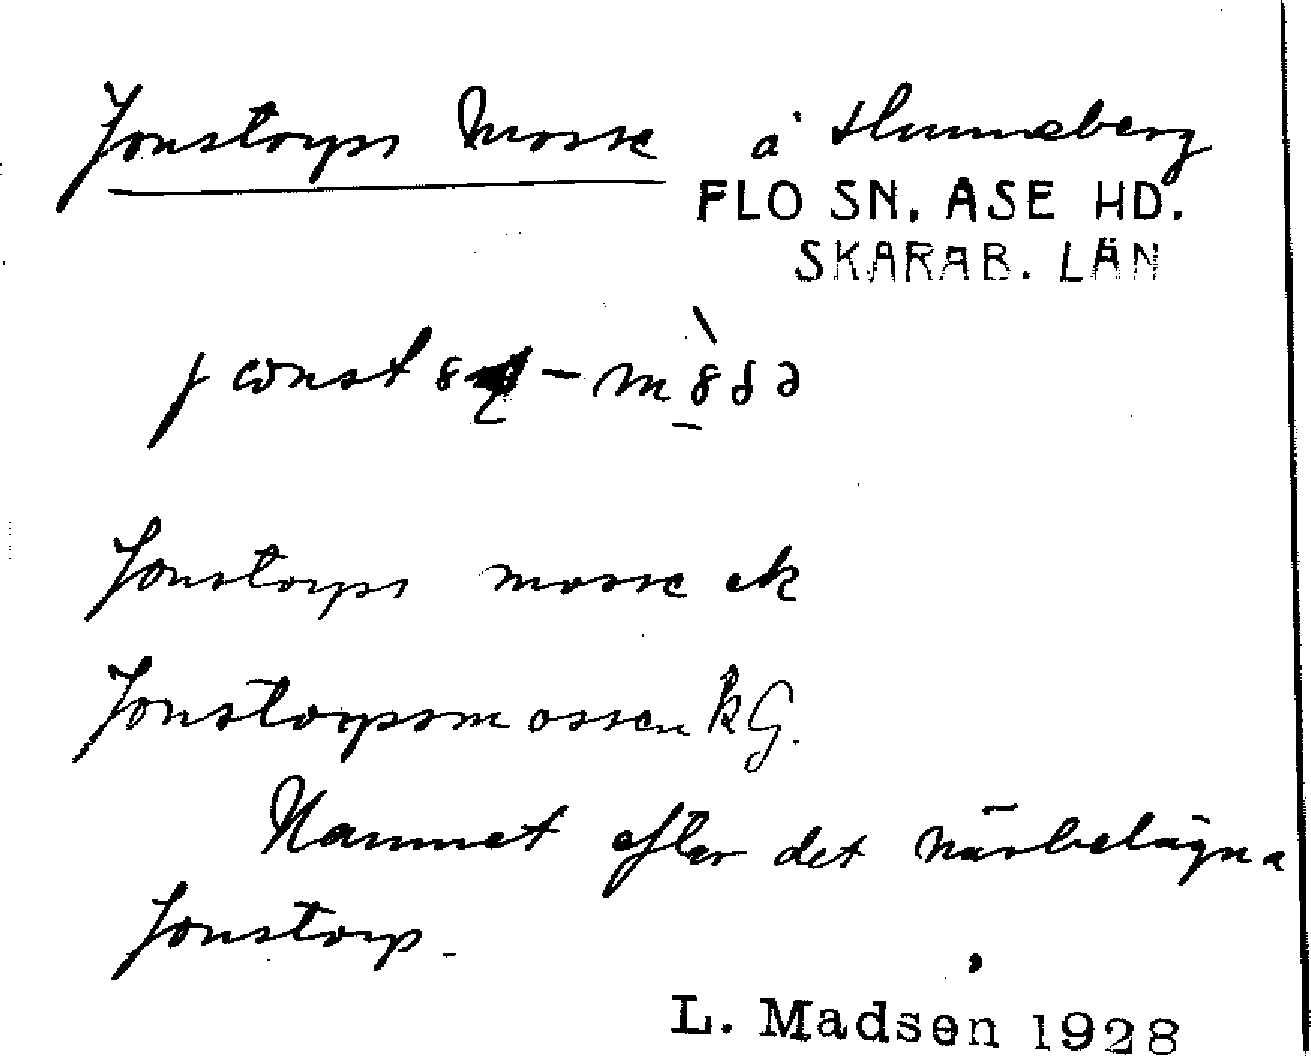 Jonstorps Mosse å Hunneberg
FLO SN. ASE HD.
SKARAB. LÄN
Jonstorps mosse ek
Jonstorpsmossen kG.
Namnet efter det närbelägna
Jonstorp.
L. Madsen 1928